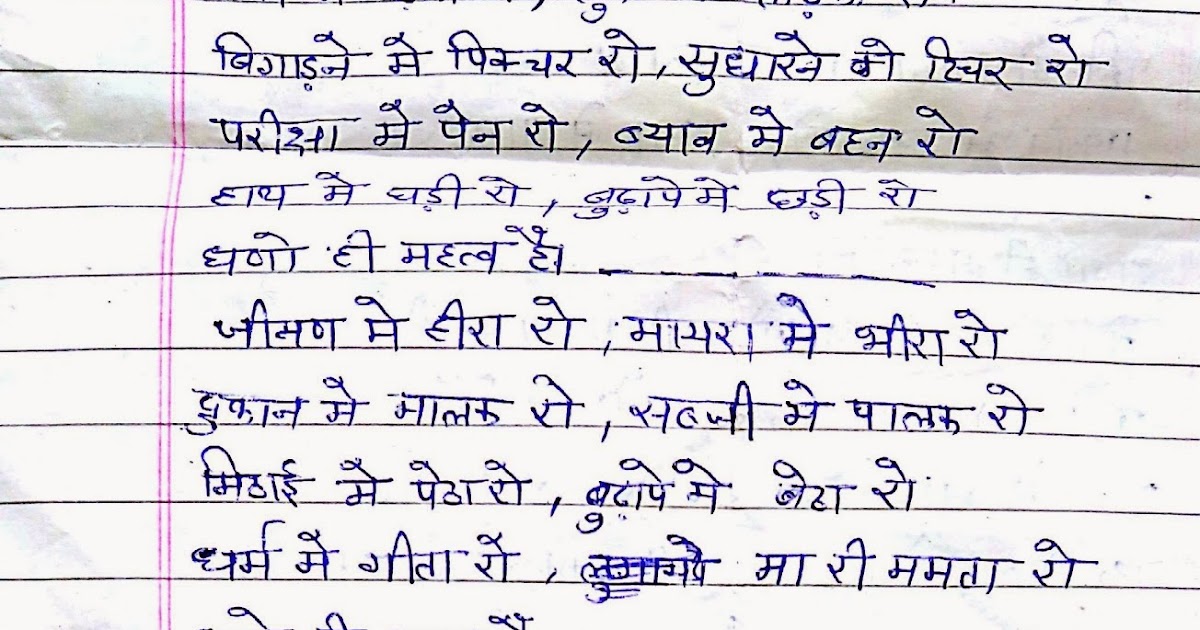 बिगाड़ने मै पिक्चर रो, सुधारने को टिचर रो
परीक्षा मै पैन रो, ब्याव मे बहन रो
हाथ मै घड़ी रो, बुढ़ापे मे छड़ी रो
घणो ही महत्व है।
जीमण मे हीरा रो, मायरा मे भीरा रो
दुकान मै मालक रो, सब्जी मे पालक रो
मिठाई मै पेठा रो, बुढ़ापे मे बेटा रो
धर्म मै गीता रो, मा री ममता रो